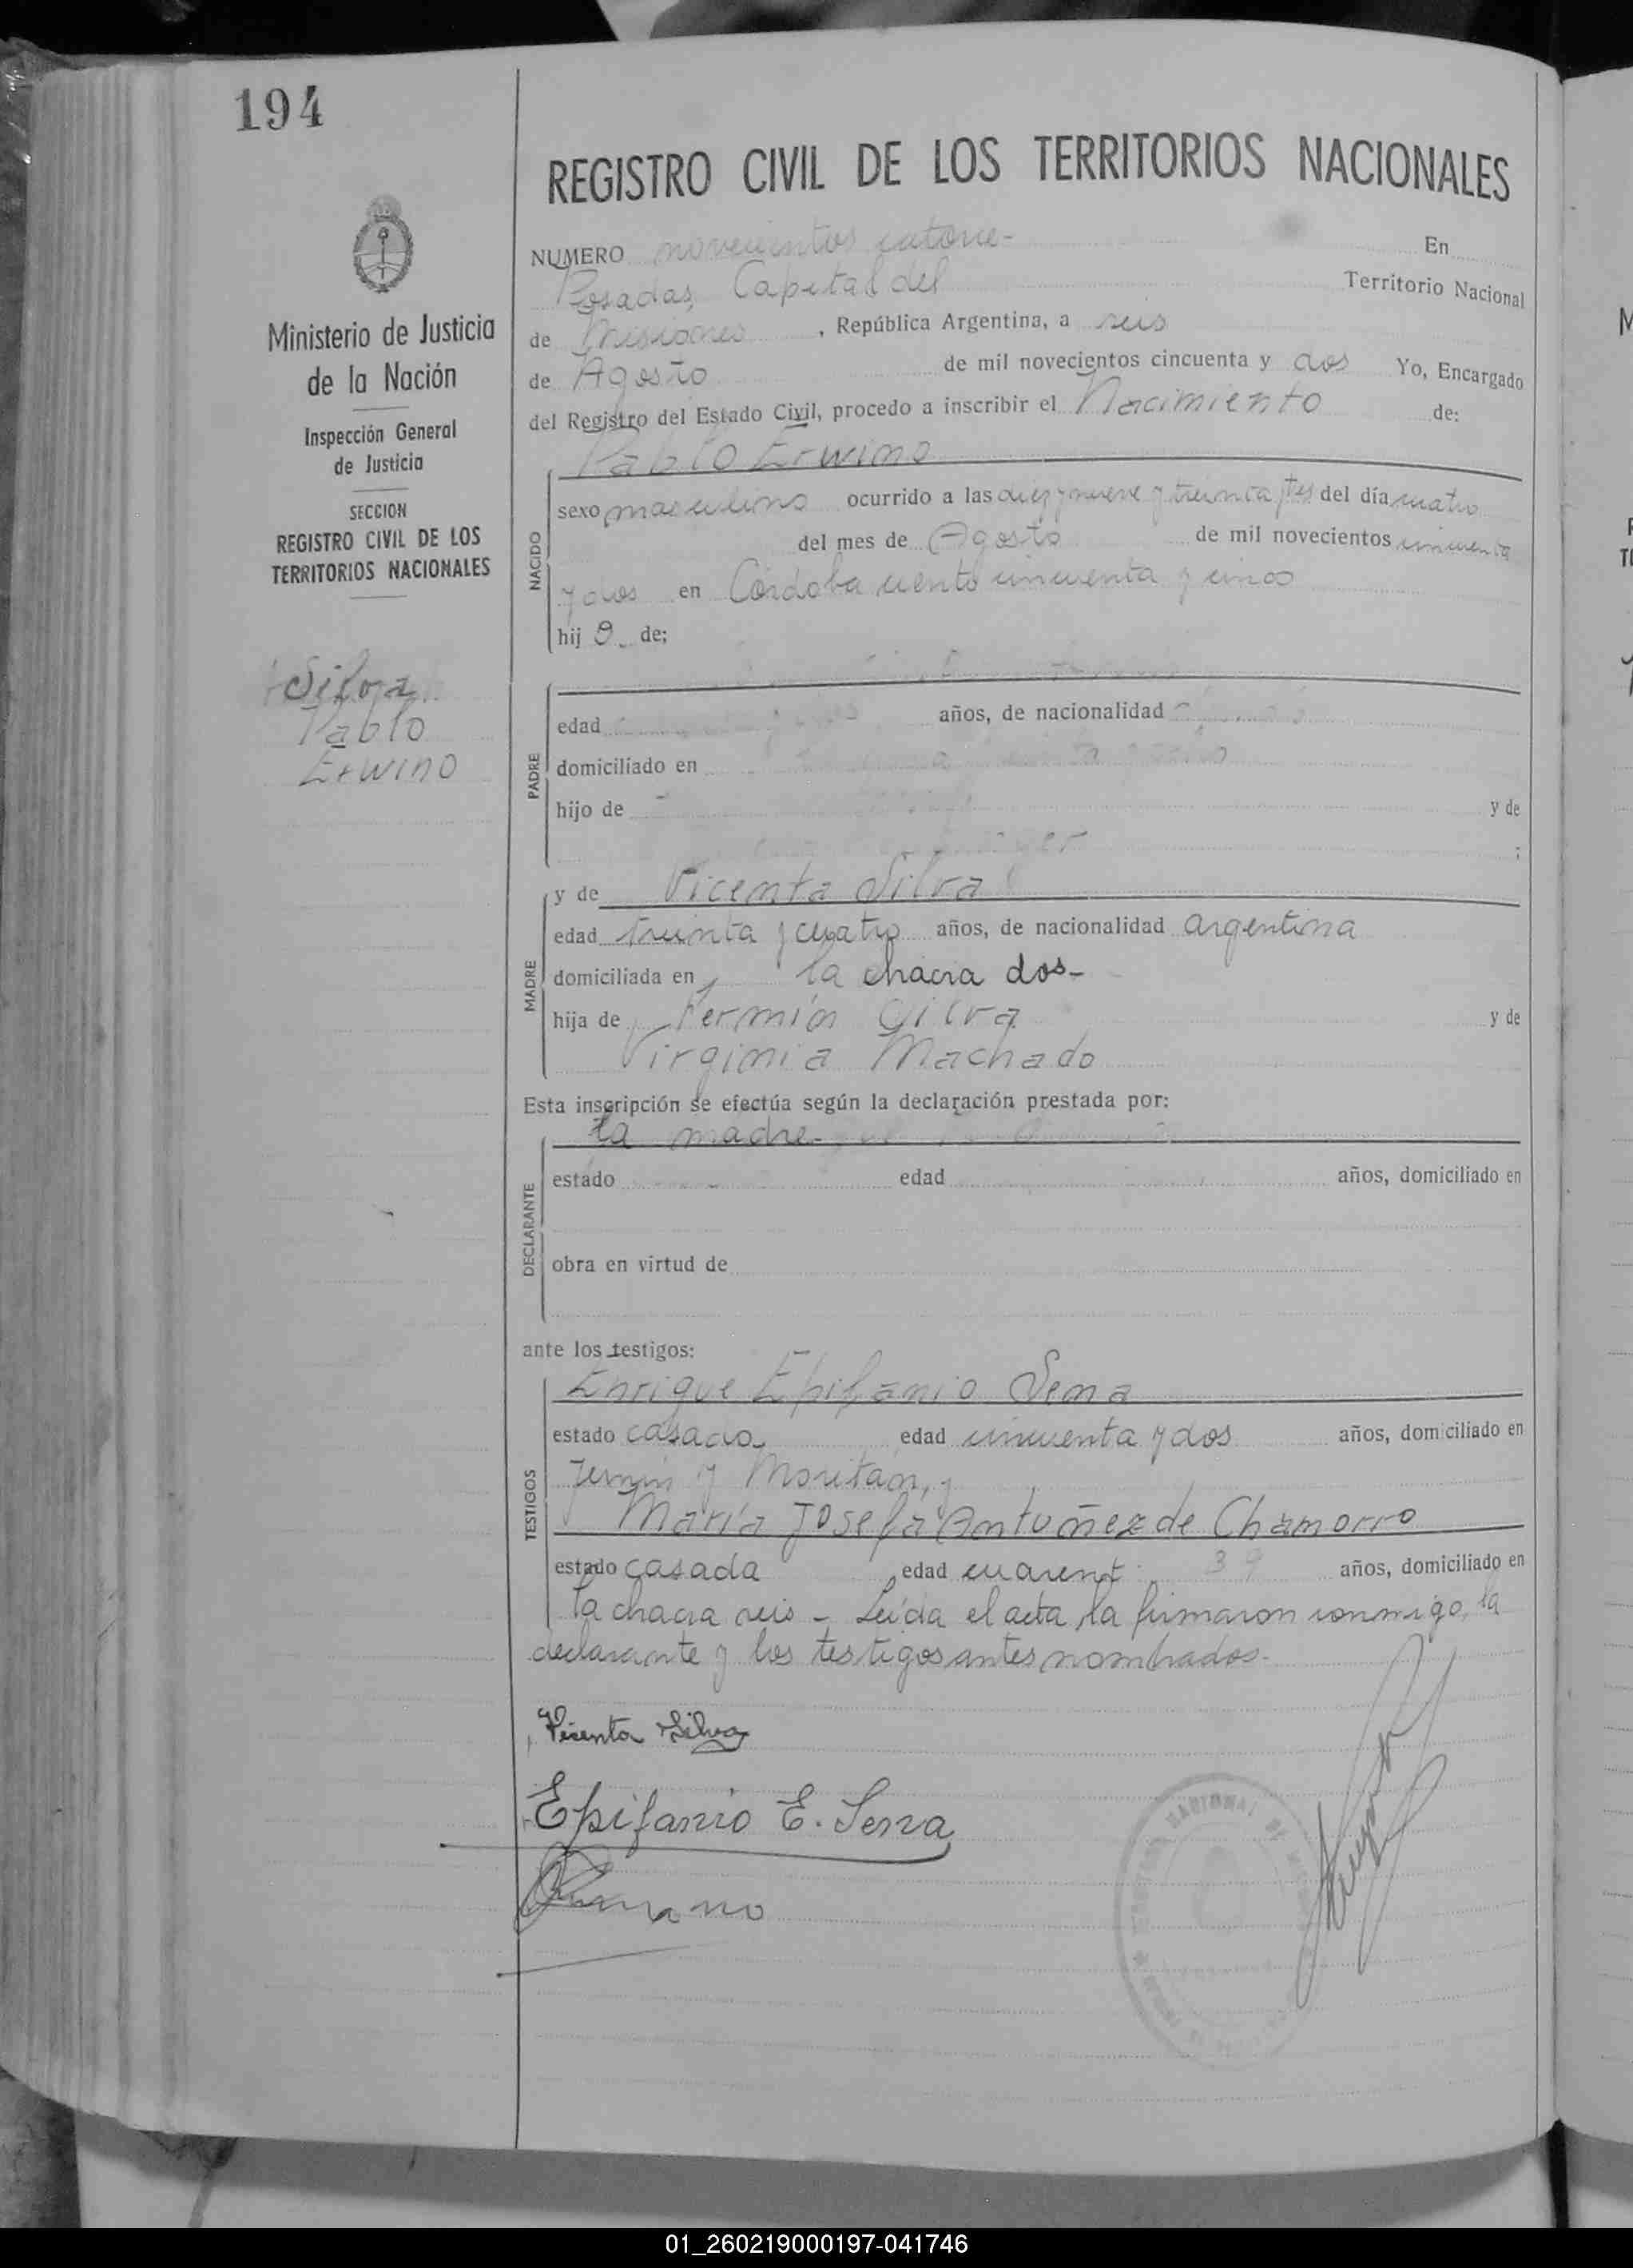 194
REGISTRO CIVIL DE LOS TERRITORIOS NACIONALES
Ministerio de Justicia
de la Nación
Inspección General
de Justicia
SECCION
REGISTRO CIVIL DE LOS
TERRITORIOS NACIONALES
Silva
Pablo
Erwino
NUMERO novecientos catorce- En
Posadas, Capital del Territorio Nacional
de Misiones, República Argentina, a seis
de Agosto de mil novecientos cincuenta y dos Yo, Encargado
del Registro del Estado Civil, procedo a inscribir el Nacimiento de:
Pablo Erwino
NACIDO
sexo masculino ocurrido a las diez y nueve y treinta del día cuatro
del mes de Agosto de mil novecientos cincuenta
y dos en Córdoba ciento cincuenta y cinco
hijo de;
PADRE
edad años, de nacionalidad
domiciliado en
hijo de y de
;
MADRE
y de Vicenta Silva
edad treinta y cuatro años, de nacionalidad argentina
domiciliada en la chacra dos-
hija de Fermín Silva y de
Virginia Machado
Esta inscripción se efectúa según la declaración prestada por:
la madre-
DECLARANTE
estado edad años, domiciliado en
obra en virtud de
ante los testigos:
TESTIGOS
Enrique Epifanio Sena
estado casado edad cincuenta y dos años, domiciliado en
y Moritán, y
María Josefa Antuñez de Chamorro
estado casada edad cuarent 39 años, domiciliado en
la chacra seis - Leída el acta, la firmaron conmigo, la
declarante y los testigos antes nombrados-
Visenta Silva
Epifanio E. Sena
01_260219000197-041746